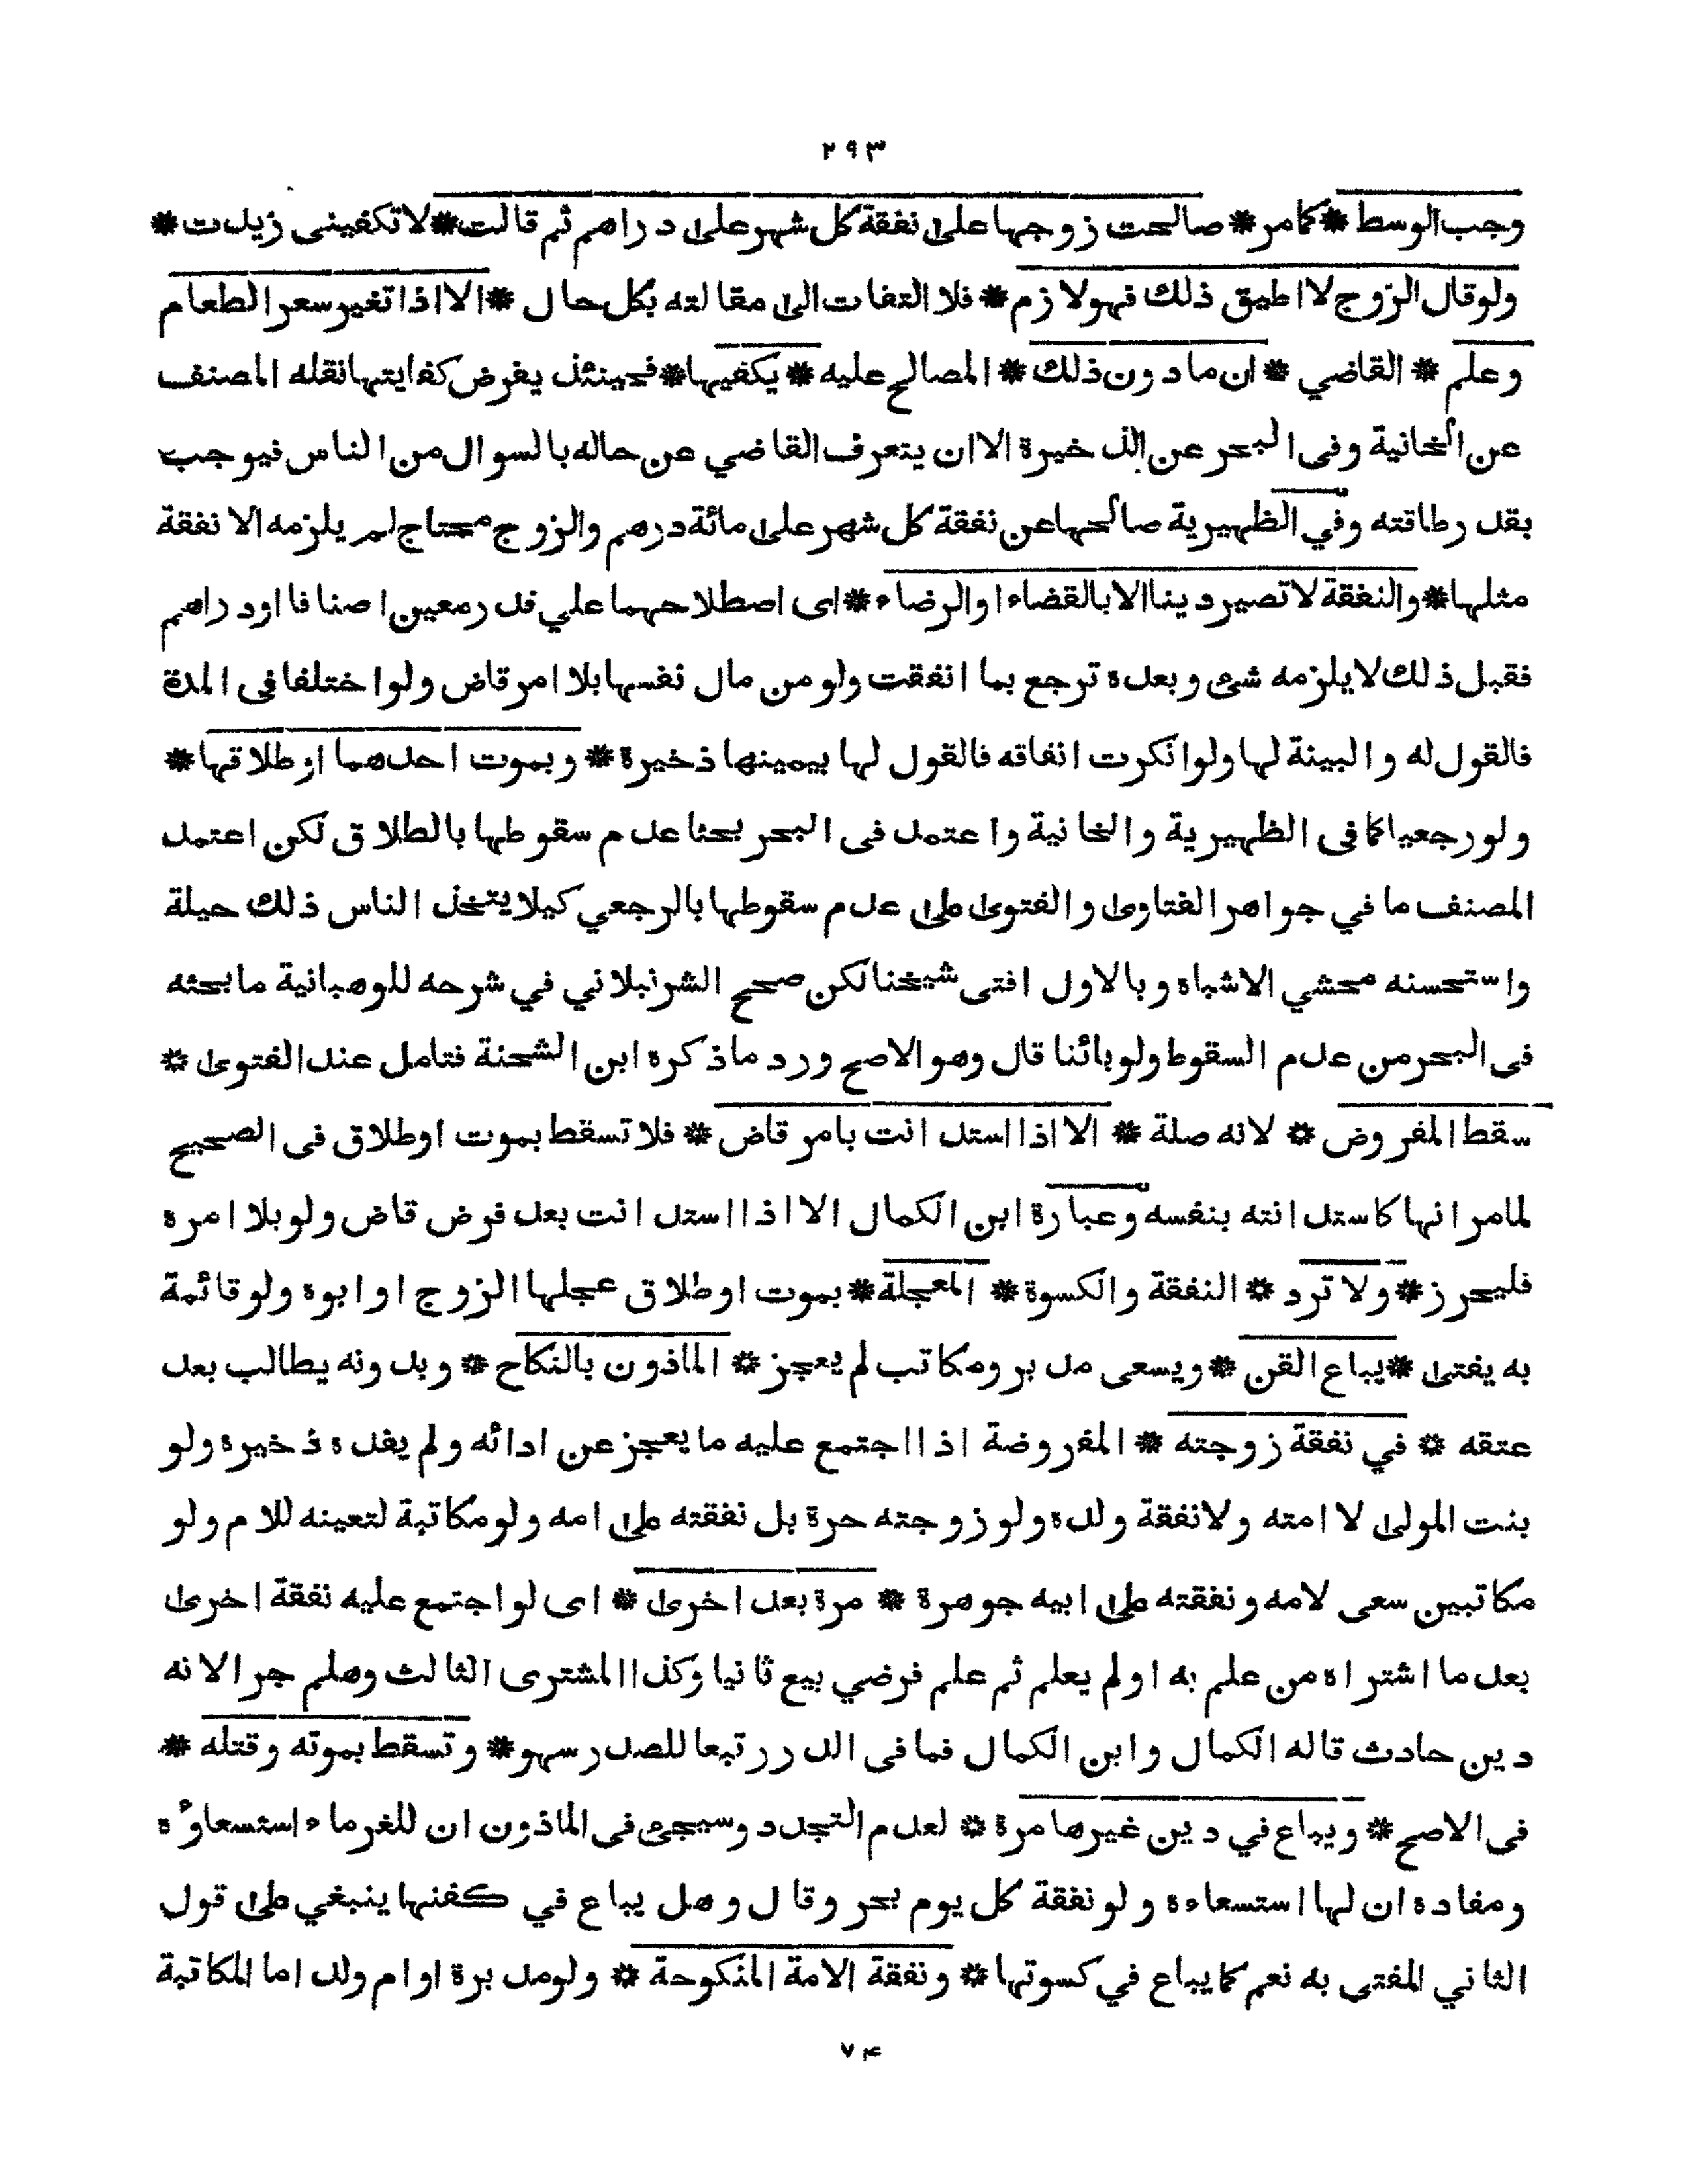 ٢٩٣
وجب الوسط * كما مر * صالحت زوجها على نفقة كل شهر على دراهم ثم قالت * لا تكفيني زيدت *
ولو قال الزوج لا اطيق ذلك فهو لازم * فلا التفات الى مقالته بكل حال * الا اذا تغير سعر الطعام
وعلم * القاضي * ان ما دون ذلك * المصالح عليه * يكفيها * فحينئذ يفرض كفايتها نقله المصنف
عن الخانية وفى البحر عن الذخيرة الا ان يتعرف القاضي عن حاله بالسوال من الناس فيوجب
بقدر طاقته وفي الظهيرية صالحها عن نفقة كل شهر على مائة درهم والزوج محتاج لم يلزمه الا نفقة
مثلها * والنفقة لا تصير دينا الا بالقضاء او الرضاء * اى اصطلاحهما علي قدر معين اصنافا او دراهم
فقبل ذلك لا يلزمه شئ وبعده ترجع بما انفقت ولو من مال نفسها بلا امر قاض ولو اختلفا فى المدة
فالقول له والبينة لها ولو انكرت انفاقه فالقول لها بيمينها ذخيرة * وبموت احدهما او طلاقها *
ولو رجعيا كما فى الظهيرية والخانية واعتمد فى البحر بحثا عدم سقوطها بالطلاق لكن اعتمد
المصنف ما في جواهر الفتاوى والفتوى على عدم سقوطها بالرجعي كيلا يتخذ الناس ذلك حيلة
واستحسنه محشي الاشباه وبالاول افتى شيخنا لكن صحح الشرنبلاني في شرحه للوهبانية ما بحثه
فى البحر من عدم السقوط ولو بائنا قال وهو الاصح ورد ما ذكره ابن الشحنة فتامل عند الفتوى *
سقط المفروض * لانه صلة * الا اذا استدانت بامر قاض * فلا تسقط بموت او طلاق فى الصحيح
لما مر انها كاستدانته بنفسه وعبارة ابن الكمال الا اذا استدانت بعد فرض قاض ولو بلا امره
فليحرز * ولا ترد * النفقة والكسوة * المعجلة * بموت او طلاق عجلها الزوج او ابوه ولو قائمة
به يفتى * يباع القن * ويسعى مدبر ومكاتب لم يعجز * الماذون بالنكاح * وبدونه يطالب بعد
عتقه * في نفقة زوجته * المفروضة اذا اجتمع عليه ما يعجز عن ادائه ولم يفده ذخيرة ولو
بنت المولى لا امته ولا نفقة ولده ولو زوجته حرة بل نفقته على امه ولو مكاتبة لتعينه للام ولو
مكاتبين سعى لامه ونفقته على ابيه جوهرة * مرة بعد اخرى * اى لو اجتمع عليه نفقة اخرى
بعد ما اشتراه من علم به او لم يعلم ثم علم فرضي بيع ثانيا وكذا المشترى الثالث وهلم جرا لانه
دين حادث قاله الكمال وابن الكمال فما فى الدرر تبعا للصدر سهو * وتسقط بموته وقتله *
فى الاصح * ويباع في دين غيرها مرة * لعدم التجدد وسيجئ فى الماذون ان للغرماء استسعاؤه
ومفاده ان لها استسعاءه ولو نفقة كل يوم بحر وقال وهل يباع في كفنها ينبغي على قول
الثاني المفتى به نعم كما يباع في كسوتها * ونفقة الامة المنكوحة * ولو مدبرة او ام ولد اما المكاتبة
٧٤